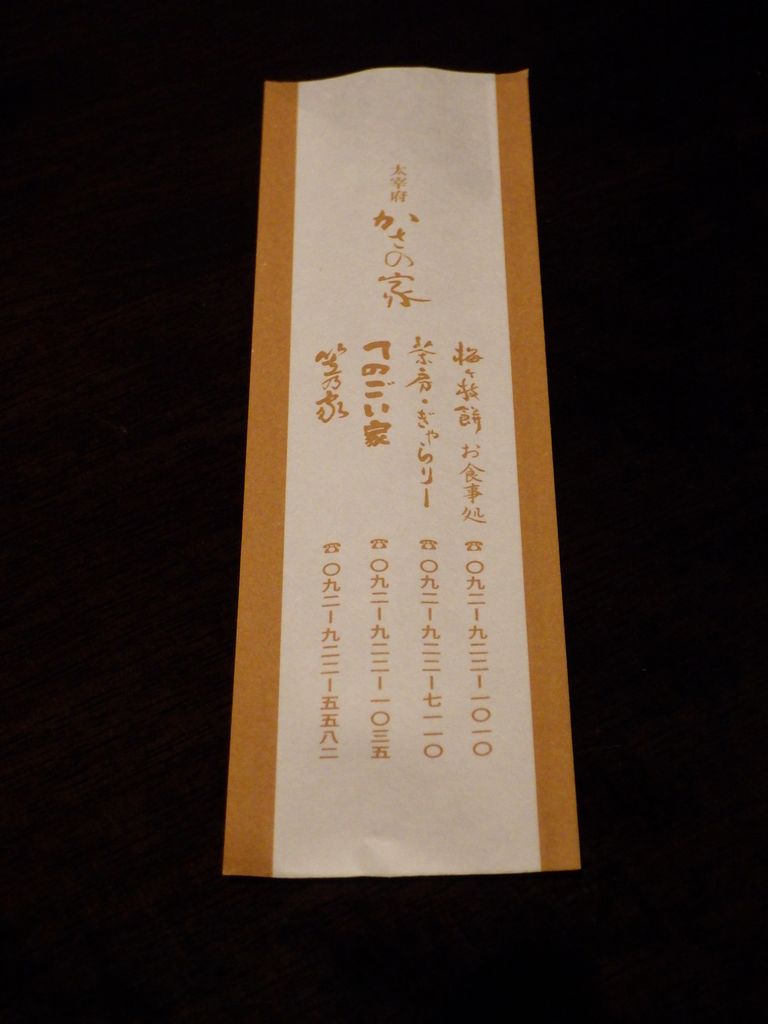 太宰府
かさの家
梅ヶ枝餅 お食事処 ☎〇九二ー九二二ー一〇一〇
茶房・ぎゃらりー ☎〇九二ー九二二ー七一一〇
てのごい家 ☎〇九二ー九二二ー一〇三五
笠乃家 ☎〇九二ー九二二ー五五八二